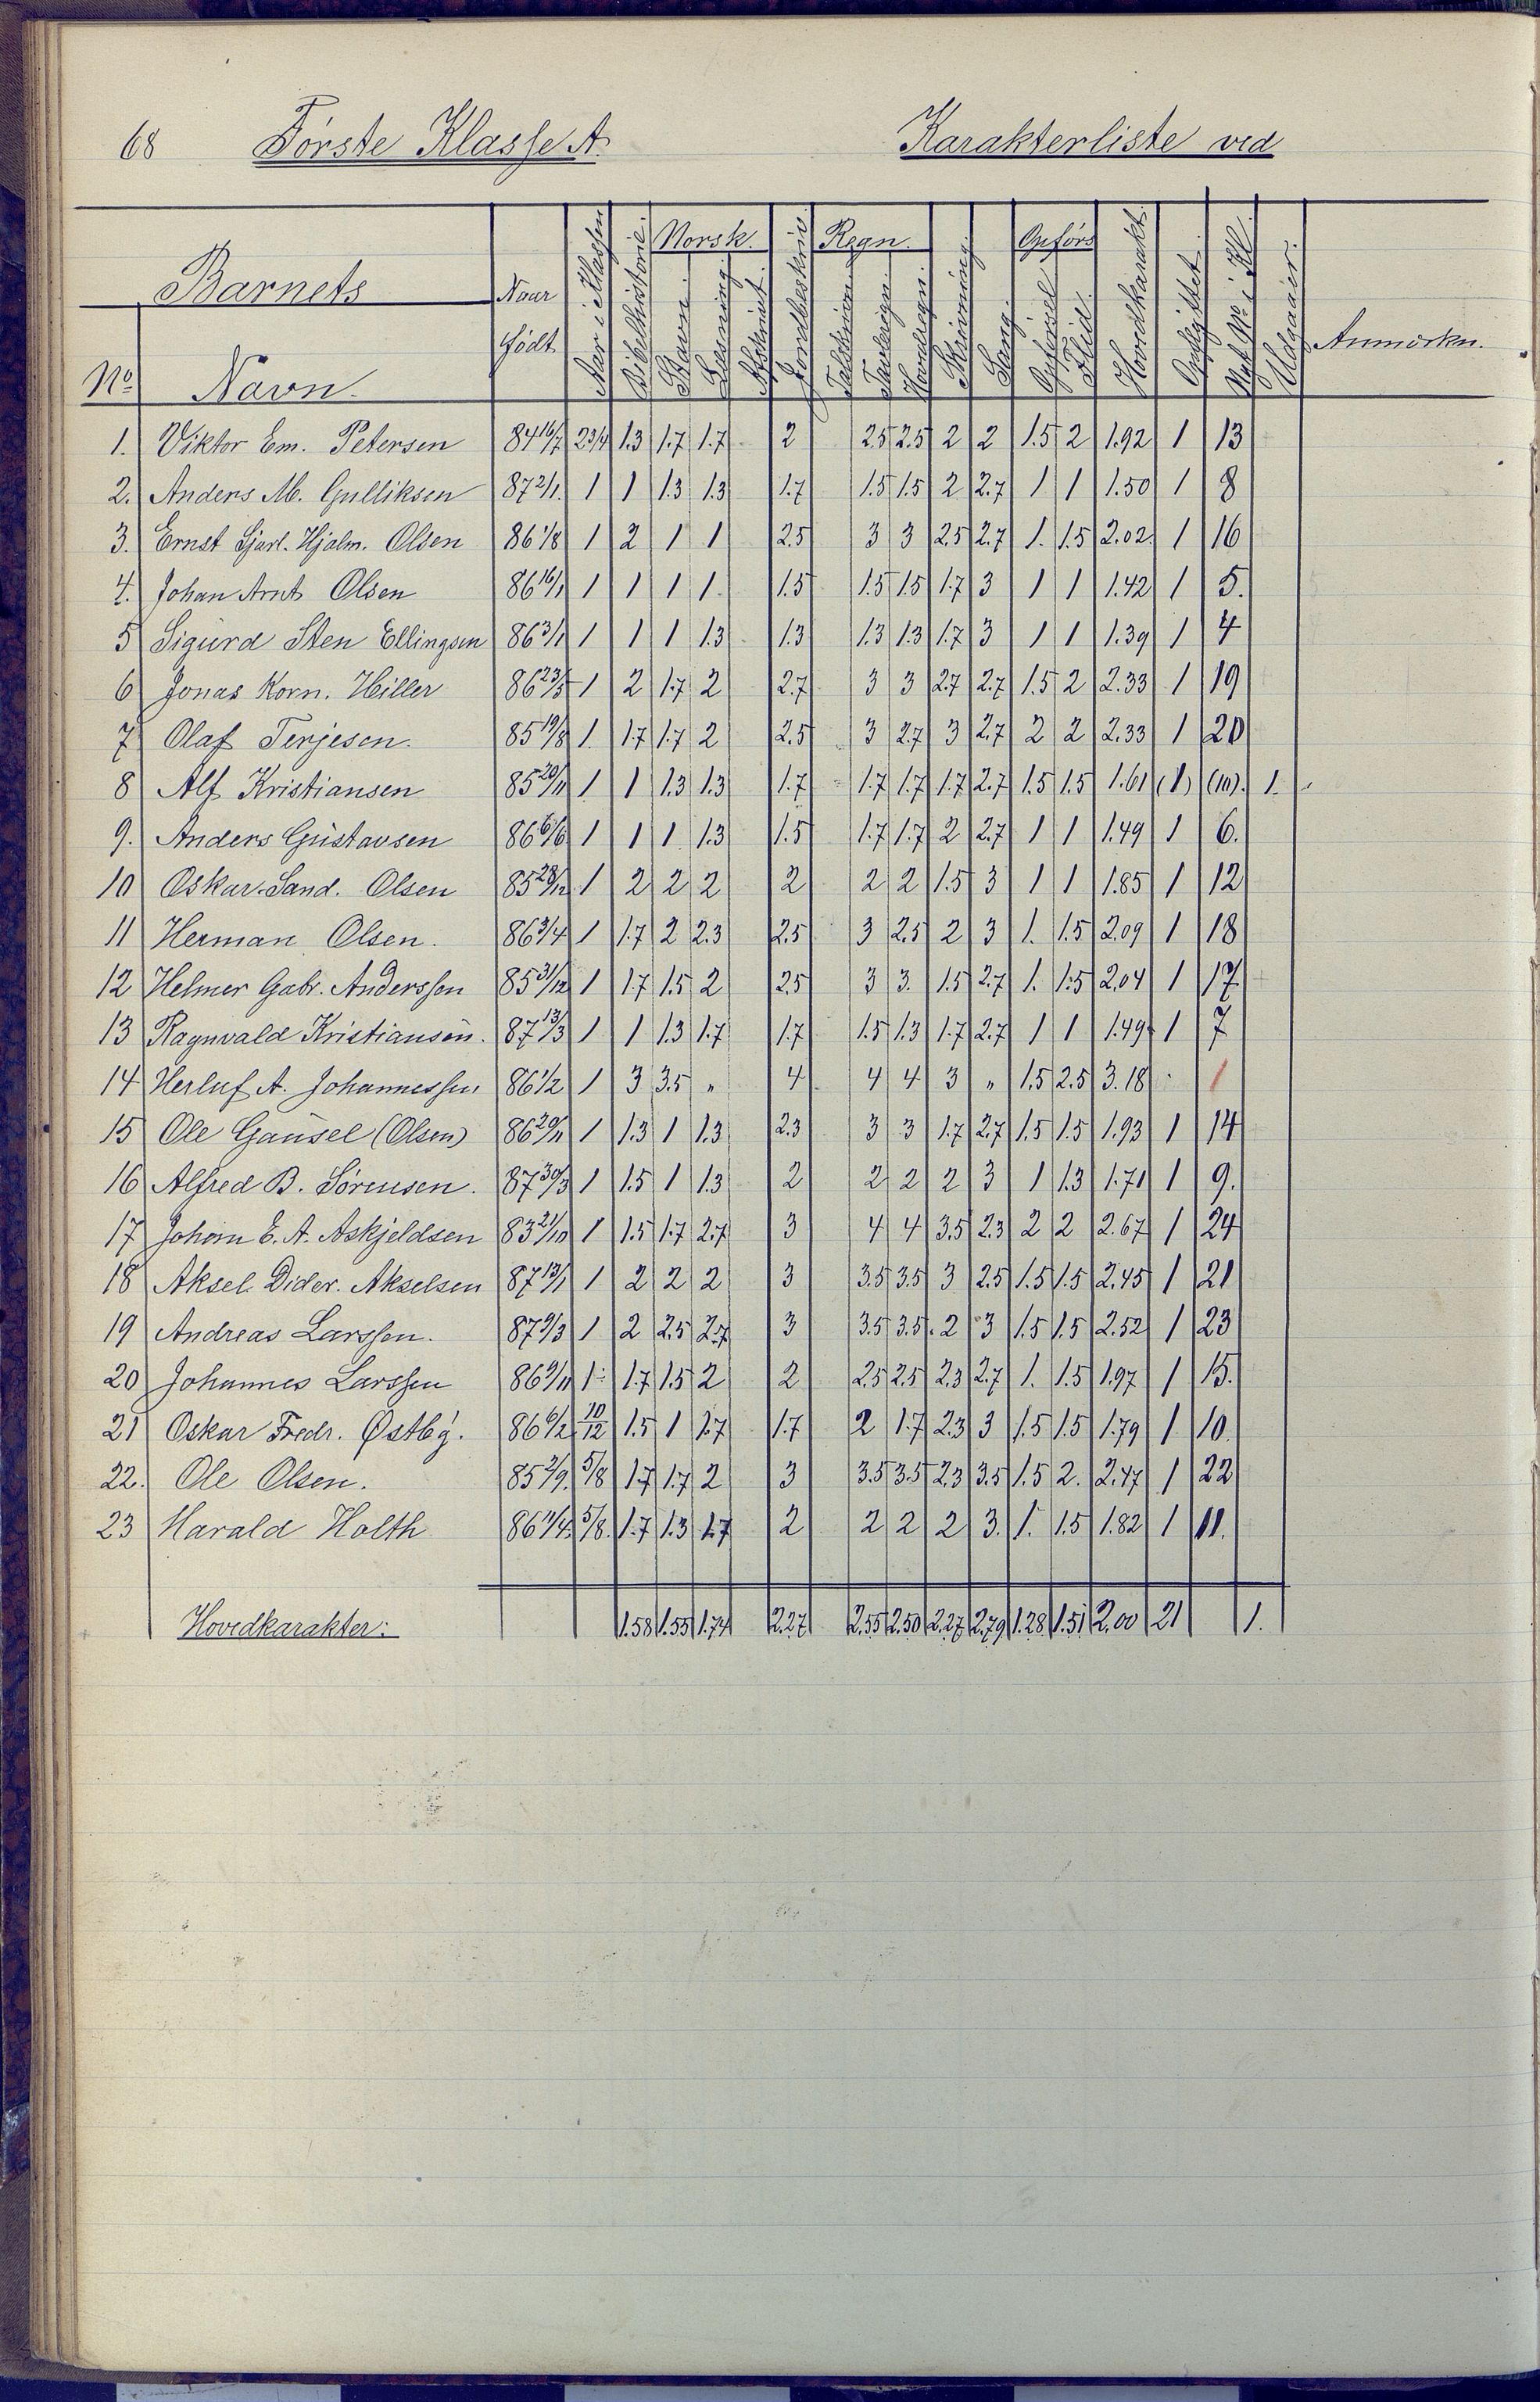 68 Første Klasse A. Karakterliste ved
Barnets Navn. No Naar født Aar i Klassen Bibelhistorie Norsk. Stavn. Læsning. Afskrivt. Jordbeskriv. Regn. Talskrivn. Tavleregn. Hovedregn. Skrivning. Sang. Opførs Opførsel Flid. Hovedkarakt. Opflyttet. Nyt No i Kl. Udgaaer. Anmærkn.
1. Viktor Em. Petersen 84 16/7 2 3/4 1.3 1.7 1.7 2 2.5 2.5 2 2 1.5 2 1.92 1 13
2. Anders M. Gulliksen 87 2/1. 1 1 1.3 1.3 1.7 1.5 1.5 2 2.7 1 1 1.50 1 8
3. Ernst Hjalm. Olsen 86 1/8 1 2 1 1 2.5 3 3 2.5 2.7 1. 1.5 2.02. 1 16
4. Johan Arnt Olsen 86 16/1 1 1 1 1 1.5 1.5 1.5 1.7 3 1 1 1.42 1 5.
5 Sigurd Sten Ellingsen 86 3/1 1 1 1 1.3 1.3 1.3 1.3 1.7 3 1 1 1.39 1 4
6 Jonas Korn. Hiller 86 23/5 1 2 1.7 2 2.7 3 3 2.7 2.7 1.5 2 2.33 1 19
7 Olaf Terjesen. 85 19/8 1. 1.7 1.7 2 2.5 3 2.7 3 2.7 2 2 2.33 1 20
8 Alf Kristiansen 85 20/11 1 1 1.3 1.3 1.7 1.7 1.7 1.7 2.7 1.5 1.5 1.61 (1) (10). 1.
9. Anders Gustavsen 86 6/6 1 1 1 1.3 1.5 1.7 1.7 2 2.7 1 1 1.49 1 6.
10 Oskar Sand. Olsen 85 28/12 1 2 2 2 2 2 2 1.5 3 1 1 1.85 1 12
11 Herman Olsen. 86 3/4 1 1.7 2 2.3 2.5 3 2.5 2 3 1. 1.5 2.09 1 18
12 Helmer Gabr. Anderssen 85 31/12 1 1.7 1.5 2 2.5 3 3. 1.5 2.7 1. 1.5 2.04 1 17
13 Ragnvald Kristiansen. 87 13/3 1 1 1.3 1.7 1.7 1.5 1.3 1.7 2.7 1 1 1.49 1 7
14 Herluf A. Johannessen 86 1/2 1 3 3.5 „ 4 4 4 3 „ 1.5 2.5 3.18 1
15 Ole Gausel (Olsen) 86 20/11 1 1.3 1 1.3 2.3 3 3 1.7 2.7 1.5 1.5 1.93 1 14
16 Alfred B. Sörensen. 87 30/3 1 1.5 1 1.3 2 2 2 2 3 1 1.3 1.71 1 9.
17 Johan E. A. Askjeldsen 83 21/10 1 1.5 1.7 2.7 3 4 4 3.5 2.3 2 2 2.67 1 24
18 Aksel Dider. Akselsen 87 13/1 1 2 2 2 3 3.5 3.5 3 2.5 1.5 1.5 2.45 1 21
19 Andreas Larssen. 87 9/3 1 2 2.5 2.7 3 3.5 3.5 2 3 1.5 1.5 2.52 1 23
20 Johannes Larssen 86 9/11 1 1.7 1.5 2 2 2.5 2.5 2.3 2.7 1. 1.5 1.97 1 15.
21 Oskar Fredr. Østbg. 86 6/2 10/12 1.5 1 1.7 1.7 2 1.7 2.3 3 1.5 1.5 1.79 1 10.
22. Ole Olsen. 85 2/9. 5/8 1.7 1.7 2 3 3.5 3.5 2.3 3.5 1.5 2. 2.47 1 22
23 Harald Holth 86 11/4. 5/8. 1.7 1.3 1.7 2 2 2 2 3. 1. 1.5 1.82 1 11.
Hovedkarakter: 1.58 1.55 1.74 2.27 2.55 2.50 2.27 2.79 1.28 1.51 2.00 21 1.